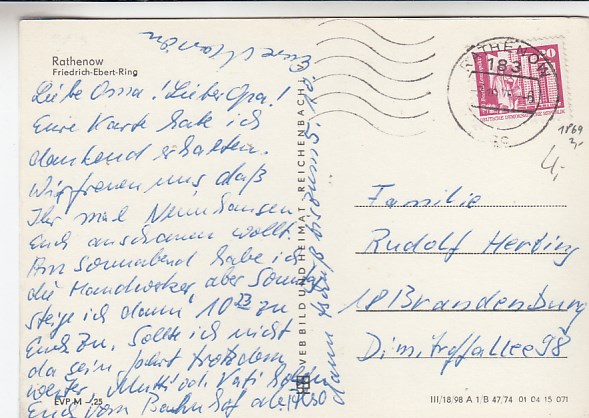 Rathenow
Friedrich-Ebert-Ring
Liebe Oma! Lieber Opa!
Eure Karte habe ich
dankend erhalten.
Wir freuen uns daß
Ihr mal Nennhausen
Euch anschauen wollt.
Am Sonnabend habe ich
die Handwerker, aber Sonntag
steige ich dann 10 23 zu
Euch zu. Sollte ich nicht
da sein fahrt trotzdem
weiter, Mutti od. Vati holen
Euch vom Bahnhof ab.
dann tschüß bis zum 5.10.
Eure
EVP M -,25
VEB BILD UND HEIMAT REICHENBACH
RATHENOW
183
20
DEUTSCHE DEMOKRATISCHE REPUBLIK
1869
4,-
Familie
Rudolf Herting
18 Brandenburg
Dimitroffallee 98
III/18/98 A 1/B 47/74 01 04 15 071